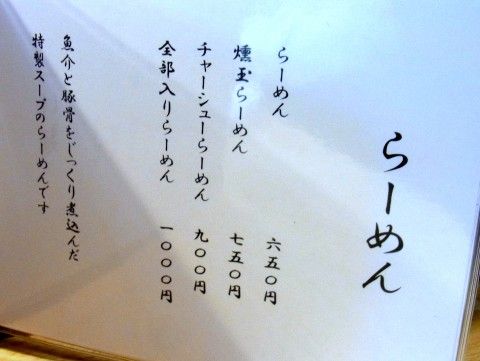 らーめん
らーめん 六五〇円
燻玉らーめん 七五〇円
チャーシューらーめん 九〇〇円
全部入りらーめん 一〇〇〇円
魚介と豚骨をじっくり煮込んだ
特製スープのらーめんです